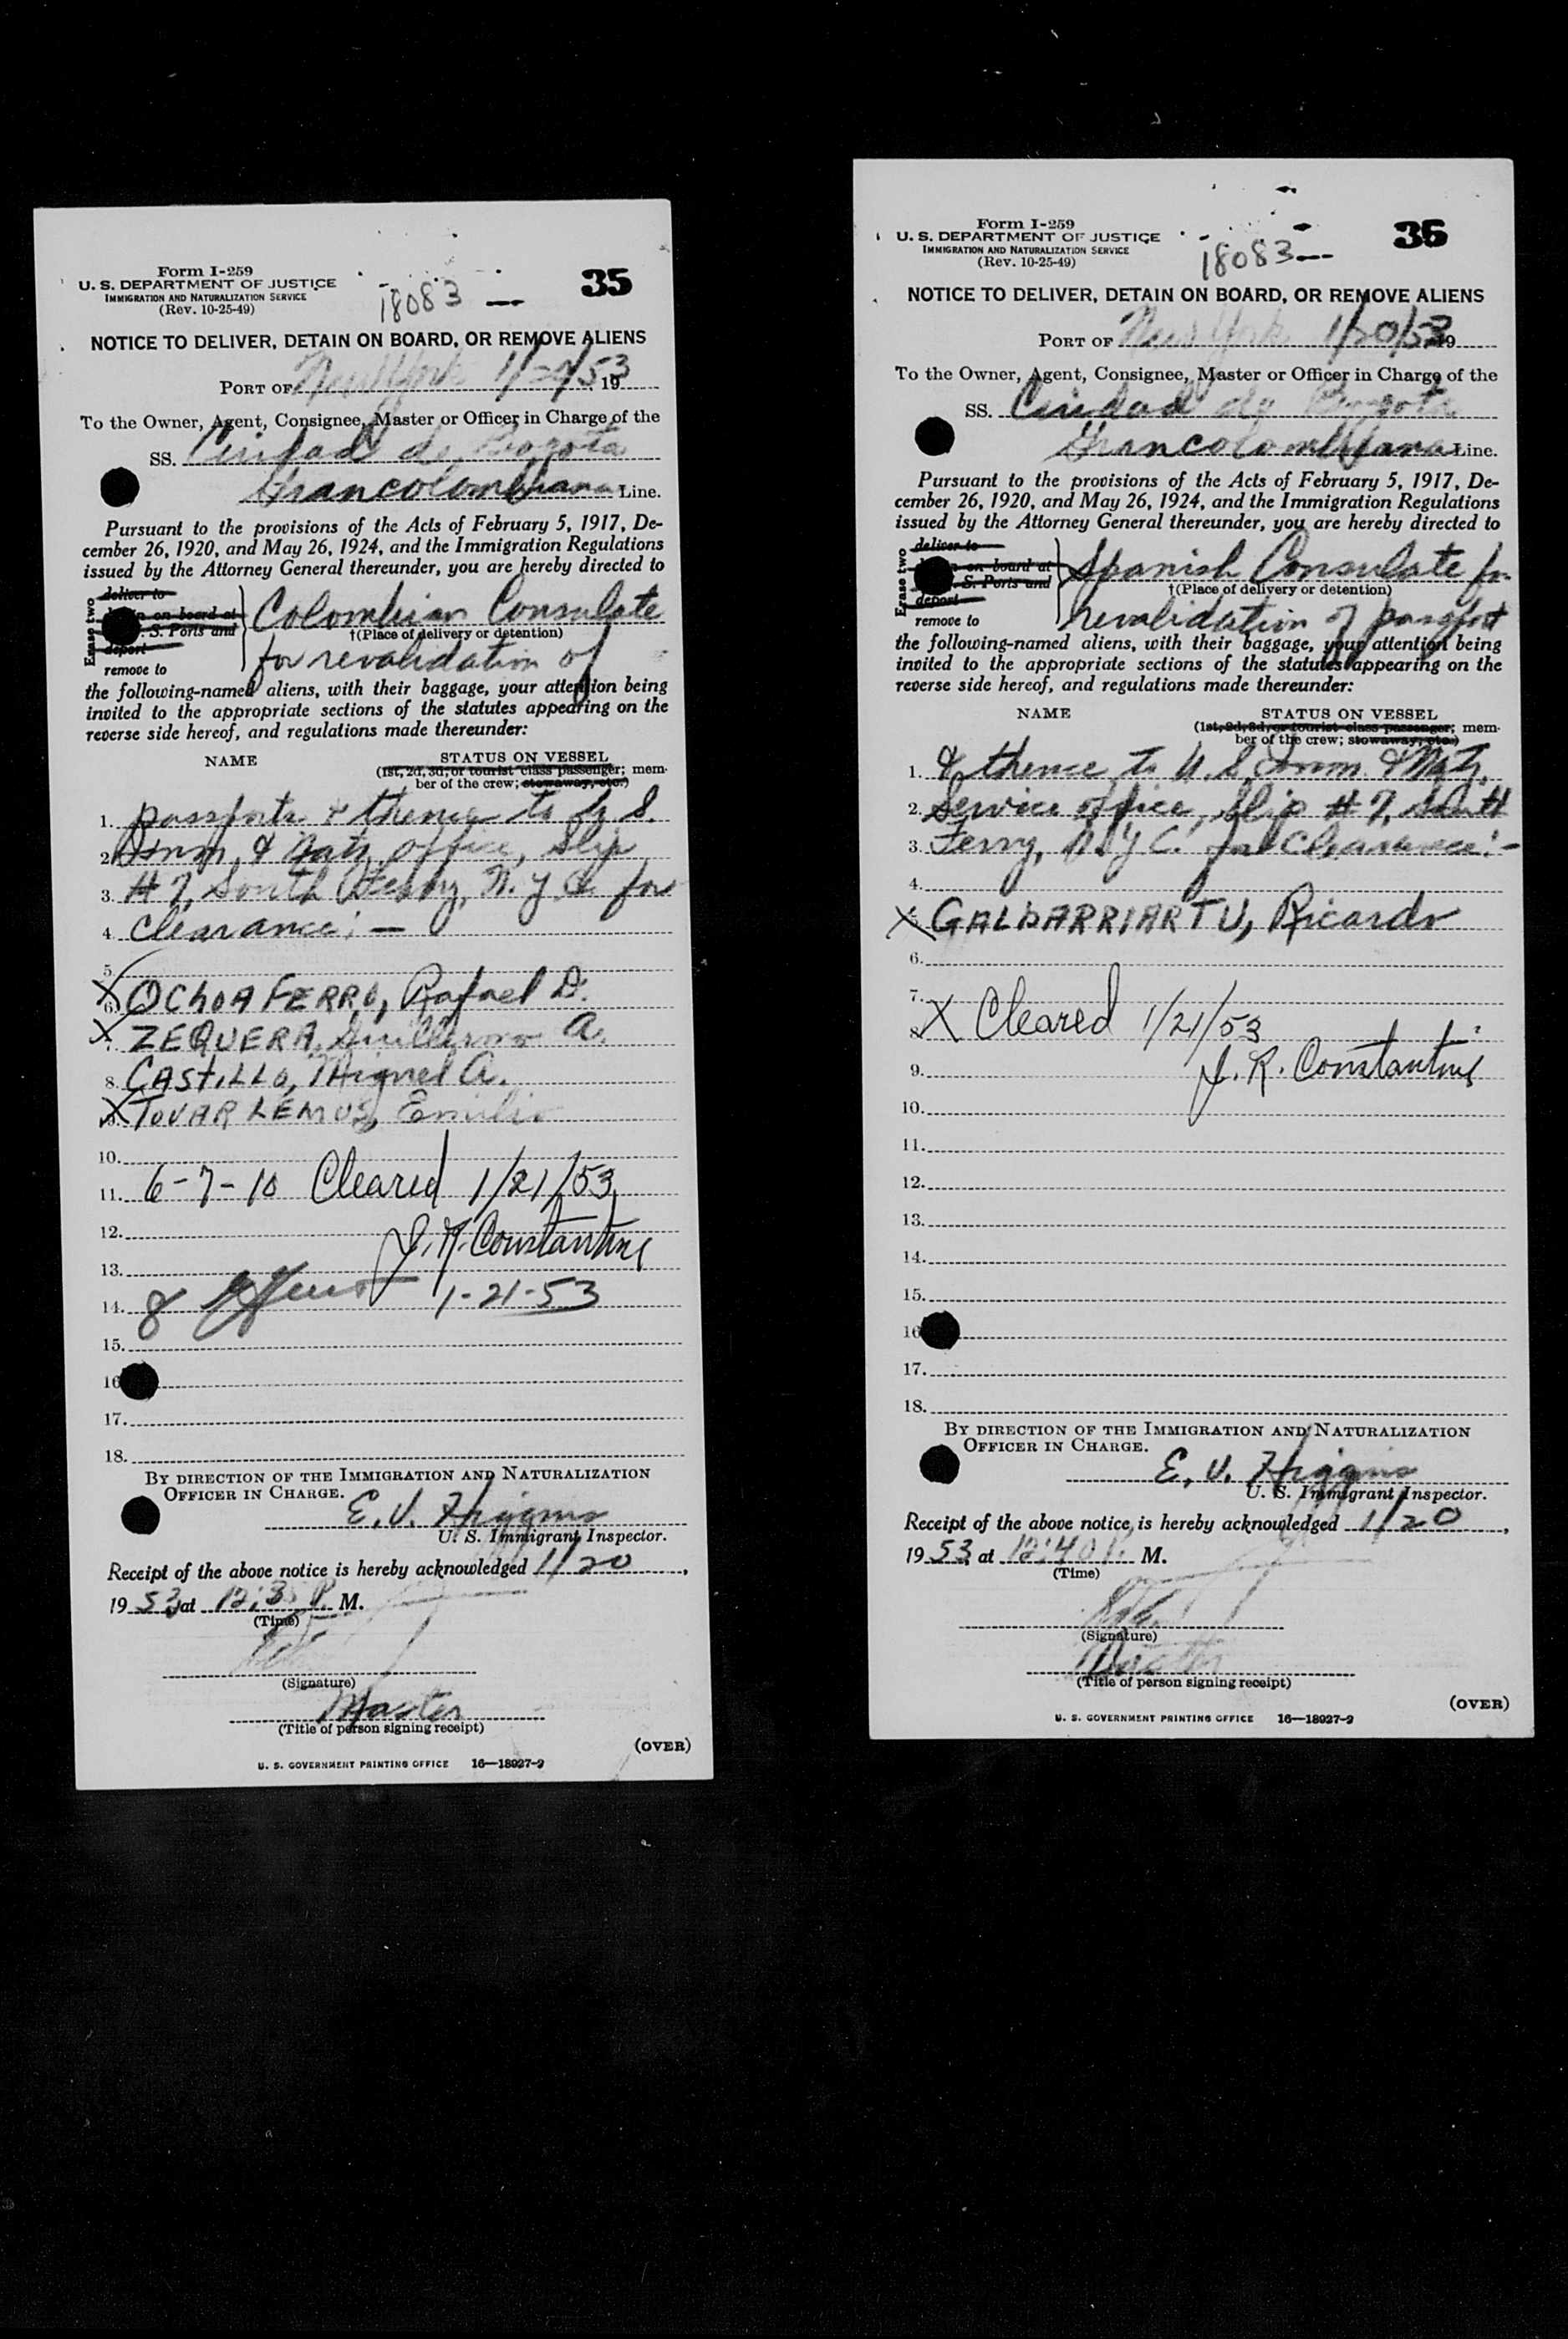 Form I-259
U. S. DEPARTMENT OF JUSTICE
IMMIGRATION AND NATURALIZATION SERVICE
(Rev. 10-25-49)
18083 —
35
NOTICE TO DELIVER, DETAIN ON BOARD, OR REMOVE ALIENS
PORT OF New York 1/20/53 19
To the Owner, Agent, Consignee, Master or Officer in Charge of the
SS. Ciudad de Bogota
Grancolombiana Line.
Pursuant to the provisions of the Acts of February 5, 1917, De-
cember 26, 1920, and May 26, 1924, and the Immigration Regulations
issued by the Attorney General thereunder, you are hereby directed to
Erase two
deliver to
on board at
S. Ports and
deport
remove to
Colombian Consulate
†(Place of delivery or detention)
for revalidation of
the following-named aliens, with their baggage, your attention being
invited to the appropriate sections of the statutes appearing on the
reverse side hereof, and regulations made thereunder:
NAME STATUS ON VESSEL
(1st, 2d, 3d, or tourist class passenger; mem-
ber of the crew; stowaway, etc.)
1. passports & thence to U. S.
2. Imm. & Natz. office, Slip
3. #7, South Ferry, N. Y. C. for
4. Clearance: —
5.
X 6. OCHOA FERRO, Rafael D.
X 7. ZEQUERA, Guillermo A.
8. CASTILLO, Miguel A.
X 9. TOVAR LEMUS, Emilio
10.
11. 6-7-10 Cleared 1/21/53
12. J. R. Constantine
13.
14. 8 1-21-53
15.
16
17.
18.
BY DIRECTION OF THE IMMIGRATION AND NATURALIZATION
OFFICER IN CHARGE.
E. V. Higgins
U. S. Immigrant Inspector.
Receipt of the above notice is hereby acknowledged 1/20,
19 53 at 12:35 P. M.
(Time)
(Signature)
Master
(Title of person signing receipt)
(OVER)
U. S. GOVERNMENT PRINTING OFFICE 16—18927-2
Form I-259
U. S. DEPARTMENT OF JUSTICE
IMMIGRATION AND NATURALIZATION SERVICE
(Rev. 10-25-49)
18083 —
36
NOTICE TO DELIVER, DETAIN ON BOARD, OR REMOVE ALIENS
PORT OF New York 1/20/53 19
To the Owner, Agent, Consignee, Master or Officer in Charge of the
SS. Ciudad de Bogota
Grancolombiana Line.
Pursuant to the provisions of the Acts of February 5, 1917, De-
cember 26, 1920, and May 26, 1924, and the Immigration Regulations
issued by the Attorney General thereunder, you are hereby directed to
Erase two
deliver to
on board at
S. Ports and
deport
remove to
Spanish Consulate for
†(Place of delivery or detention)
revalidation of passport
the following-named aliens, with their baggage, your attention being
invited to the appropriate sections of the statutes appearing on the
reverse side hereof, and regulations made thereunder:
NAME STATUS ON VESSEL
(1st, 2d, 3d, or tourist class passenger; mem-
ber of the crew; stowaway, etc.)
1. & thence to U. S. Imm. & Natz.
2. Service office, Slip #7, South
3. Ferry, N. Y. C. for Clearance: -
4.
X GALDARRIARTU, Ricardo
6.
7.
8. X Cleared 1/21/53
9. J. R. Constantine
10.
11.
12.
13.
14.
15.
16
17.
18.
BY DIRECTION OF THE IMMIGRATION AND NATURALIZATION
OFFICER IN CHARGE.
E. V. Higgins
U. S. Immigrant Inspector.
Receipt of the above notice is hereby acknowledged 1/20,
19 53 at 12:40 P. M.
(Time)
(Signature)
(Title of person signing receipt)
(OVER)
U. S. GOVERNMENT PRINTING OFFICE 16—18927-2